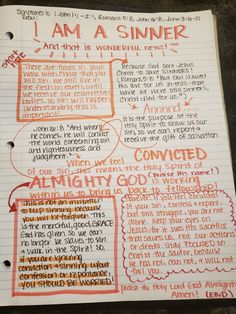 Scriptures to Read: (1 John 1:1 - 2:1, Romans 5:8, John 16:8, 1 John 3:16-21)
I AM A SINNER
And that is WONDERFUL news!
START HERE
There are times in your
walk with Christ that you
will sin. we still live in
the flesh on earth until
we meet our resurrected
bodies, so sin will happen.
Understanding this is
important!
Because God sent Jesus
Christ to save sinners!
(Romans 5:8) "But God showed
his love for us in this - that
while we were still sinners,
Christ died for us."
Annnnd
It is the purpose of the
Holy Spirit to show us our
sin, so we can repent &
receive the gift of salvation
John 16:8 "And when
he comes, he will convict
the world concerning sin
and righteousness and
judgement."
When we feel CONVICTED
of our sin, this means the Holy Spirit of
ALMIGHTY GOD (Praise His name!) is working
within us to bring us back to fellowship!
This is not an invitation
to keep sinning because
you will be forgiven. This
is the merciful, good, GRACE
God has given so we can
no longer be slaves to sin
& walk in the Spirit! So,
if you are ignoring
conviction & sinning without
confession or repentance,
YOU SHOULD BE WORRIED!
However, if you feel convicted
of your sin, confess & repent,
but still struggle, you are not
alone. Keep your eyes on
Jesus for it was His sacrifice
that saves us, not our actions
or deeds. Stay FOCUSED on
Christ the Savior, because
He has not, can not, & will not
fail you.
Praise the Holy Lord God Almighty
Amen! (END)